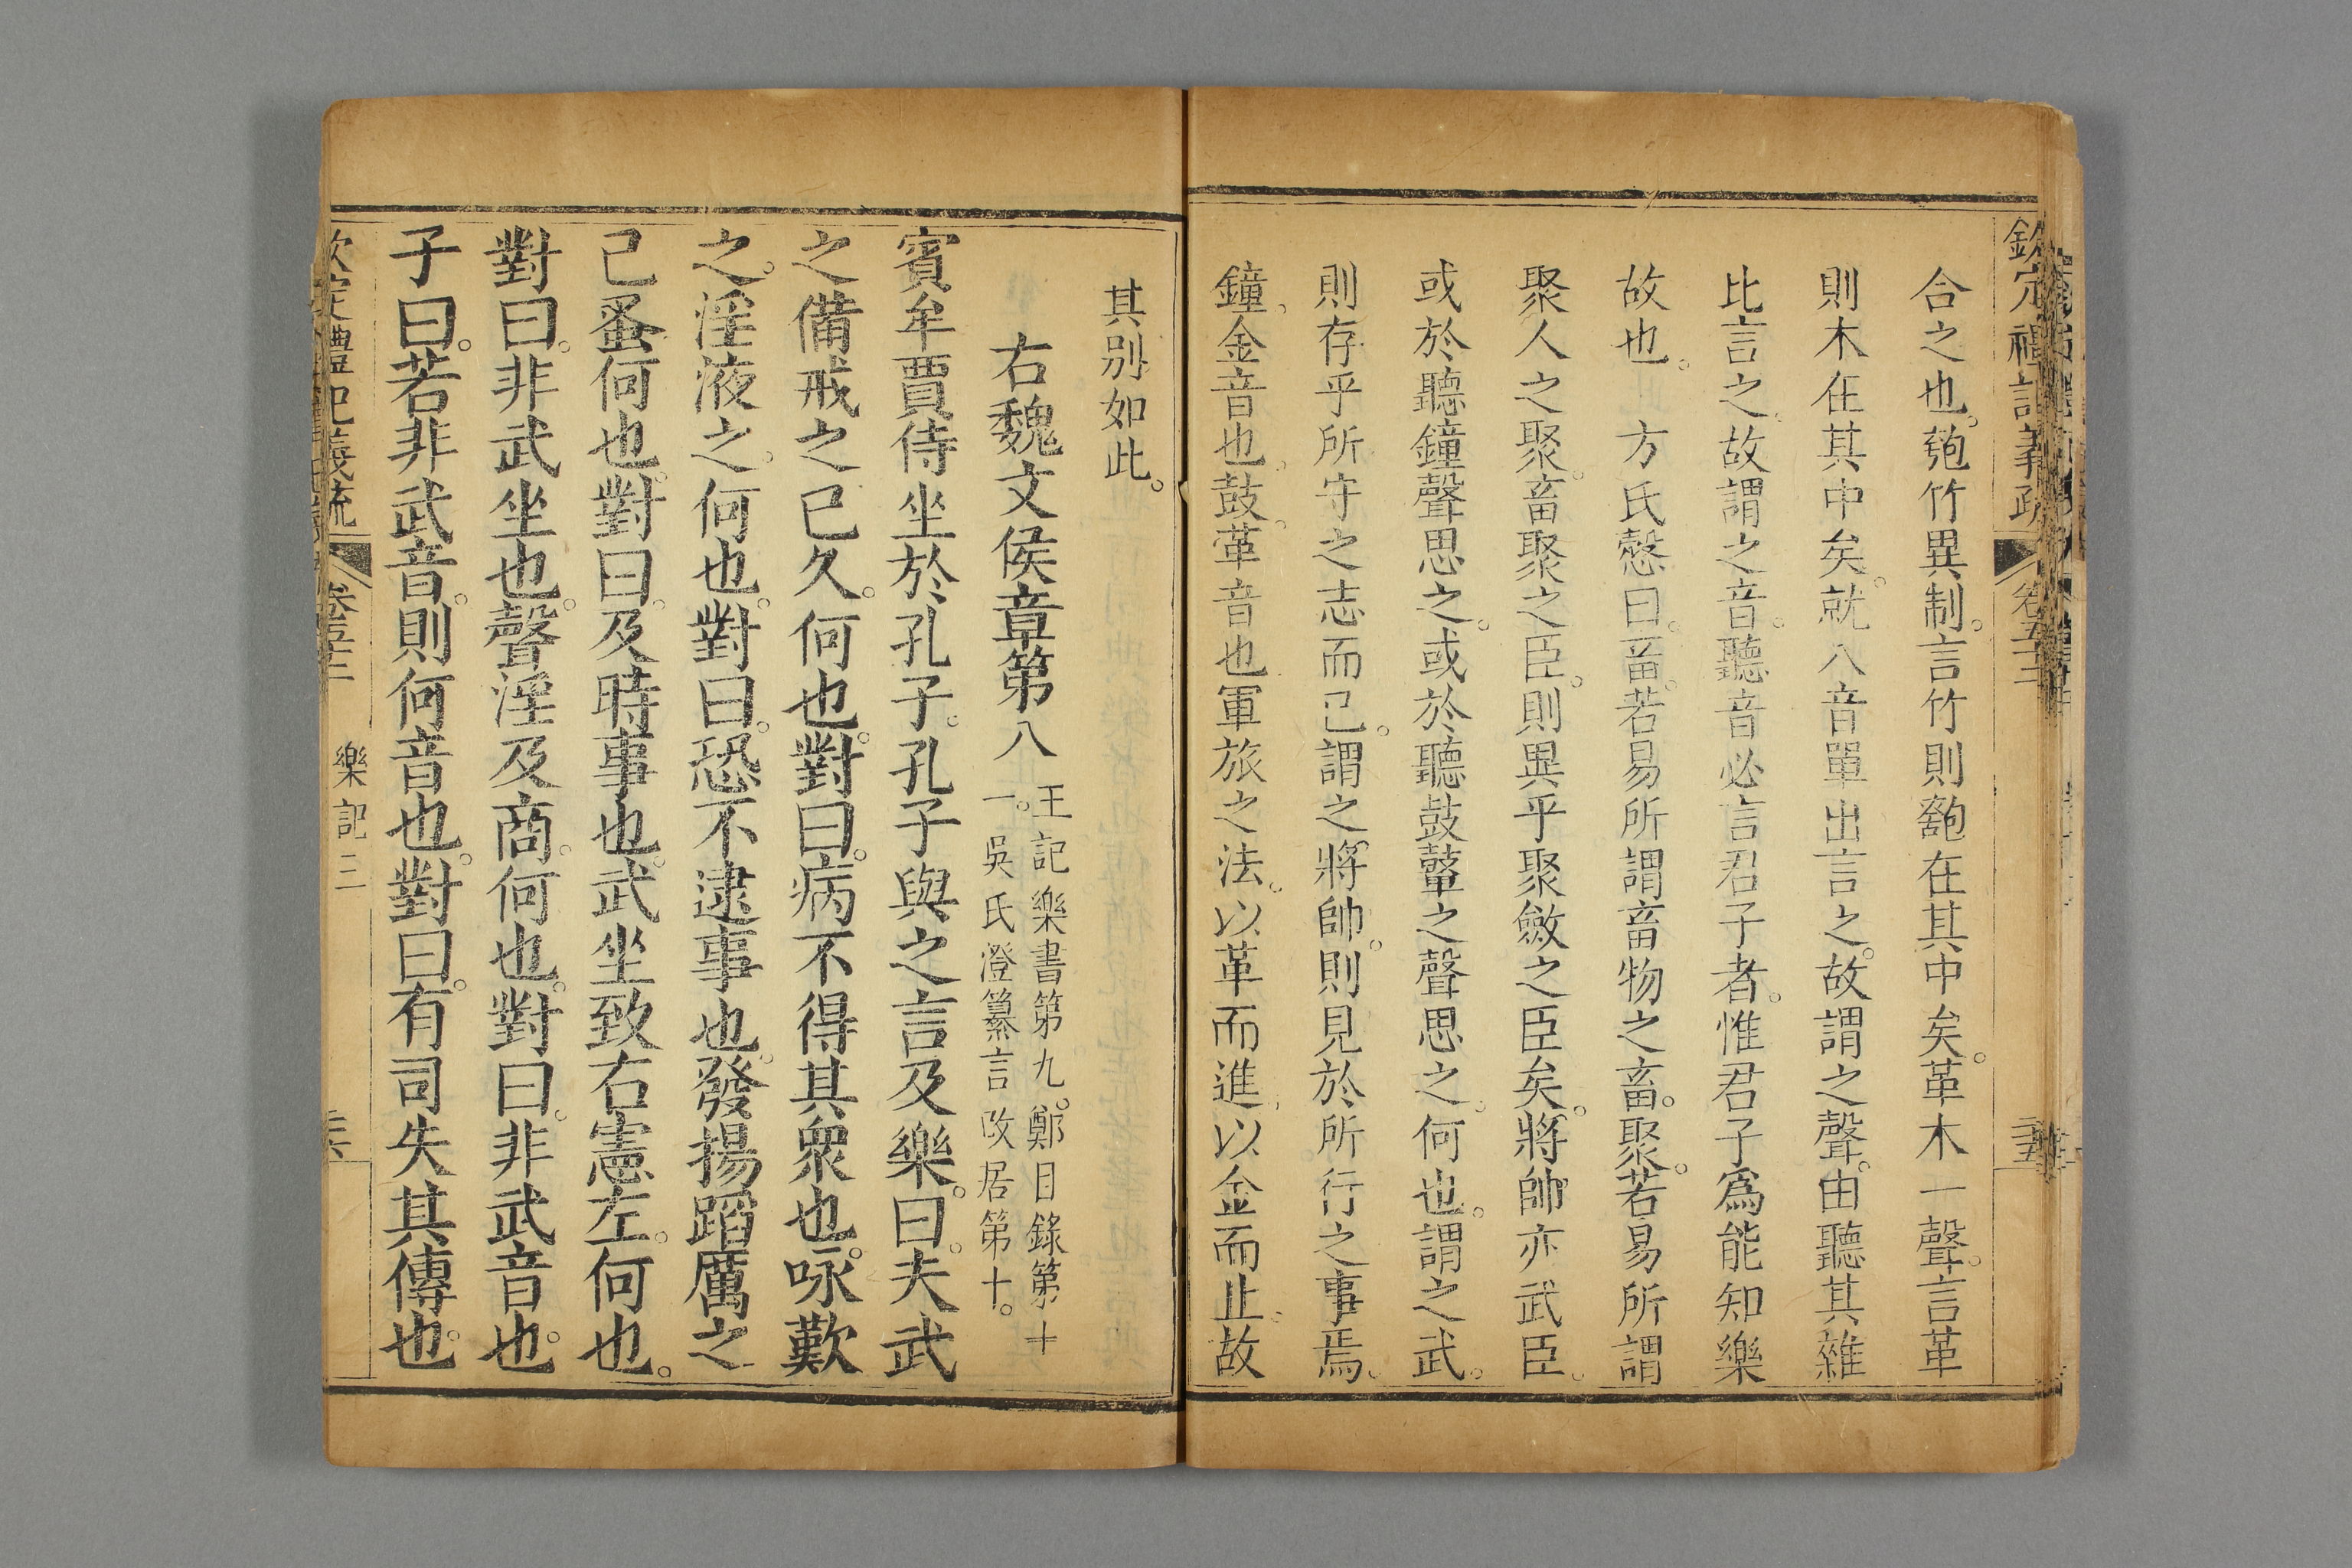 欽定禮記義疏 卷五十三 三五
合之也。匏竹異制。言竹則匏在其中矣。革木一聲。言革
則木在其中矣。就八音單出言之。故謂之聲。由聽其雜
比言之。故謂之音。聽音必言君子者。惟君子爲能知樂
故也。 方氏慤曰。畜若易所謂畜物之畜。聚若易所謂
聚人之聚。畜聚之臣。則異乎聚斂之臣矣。將帥亦武臣。
或於聽鐘聲思之。或於聽鼓鼙之聲思之。何也。謂之武。
則存乎所守之志而已。謂之將帥。則見於所行之事焉。
鐘、金音也。鼓、革音也。軍旅之法。以革而進、以金而止。故
其别如此。
右魏文侯章第八
王記樂書第九。鄭目錄第十
一。吳氏澄纂言改居第十。
賓牟賈侍坐於孔子。孔子與之言及樂。曰。夫武
之備戒之已久。何也。對曰。病不得其衆也。咏歎
之。淫液之。何也。對曰。恐不逮事也。發揚蹈厲之
已蚤何也。對曰。及時事也。武坐致右憲左。何也。
對曰。非武坐也。聲淫及商。何也。對曰。非武音也。
子曰。若非武音。則何音也。對曰。有司失其傳也。
欽定禮記義疏 卷五十三 樂記三 三六